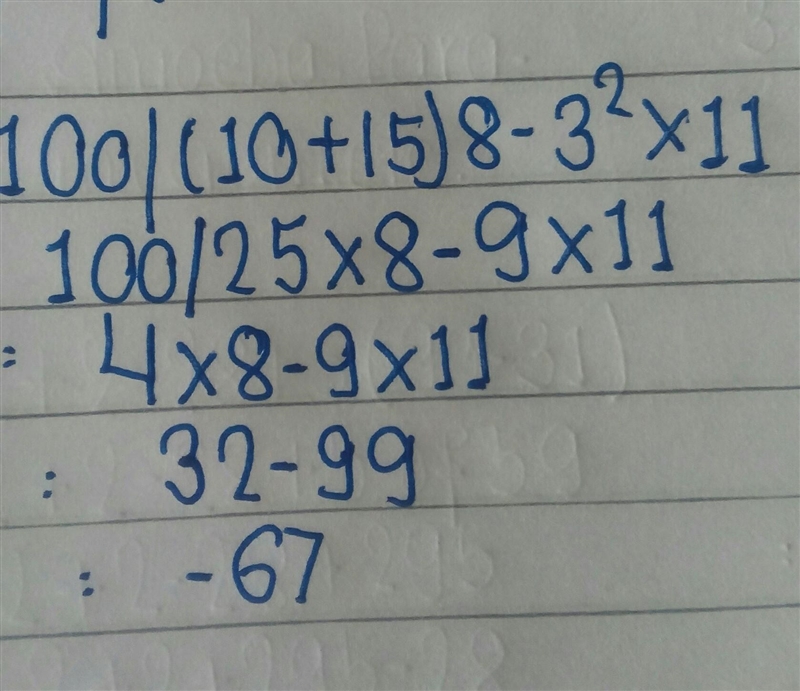 100/(10+15)8-3²×11
100/25×8-9×11
= 4×8-9×11
= 32-99
= -67